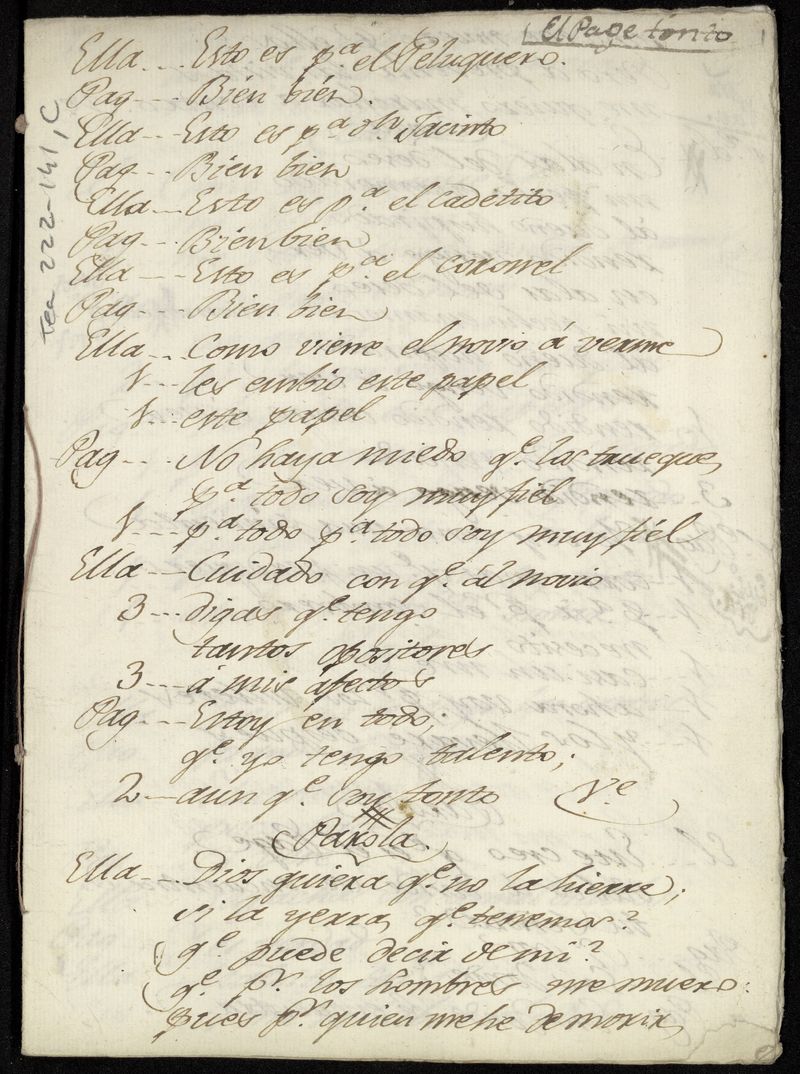 El Page tonto
Tea 222-141, C
Ella... Esto es pª el Peluquero.
Pag--- Bien bien.
Ella--- Esto es pª dn Jacinto
Pag--- Bien bien
Ella--- Esto es pª el cadetito
Pag--- Bien bien
Ella--- Esto es pª el Coronel
Pag--- Bien bien
Ella-- Como viene el novio á verme
les embio este papel
este papel
Pag--- No haya miedo qe. los trueque,
pª todo soy muy fiel
pª todo pª todo soy muy fiel
Ella-- Cuidado con qe. ál novio
3--- digas qe. tengo
tantos opositores
3--- á mis áfectos
Pag--- Estoy en todo;
qe. yo tengo talento;
2-- aun qe. soy tonto Ve
Parola.
Ella--- Dios quiera qe. no la hierre;
si la yerra, qe. tenemos?
qe puede decir de mi?
qe. pr. los hombres me muero:
pues pr. quien me he de morir,